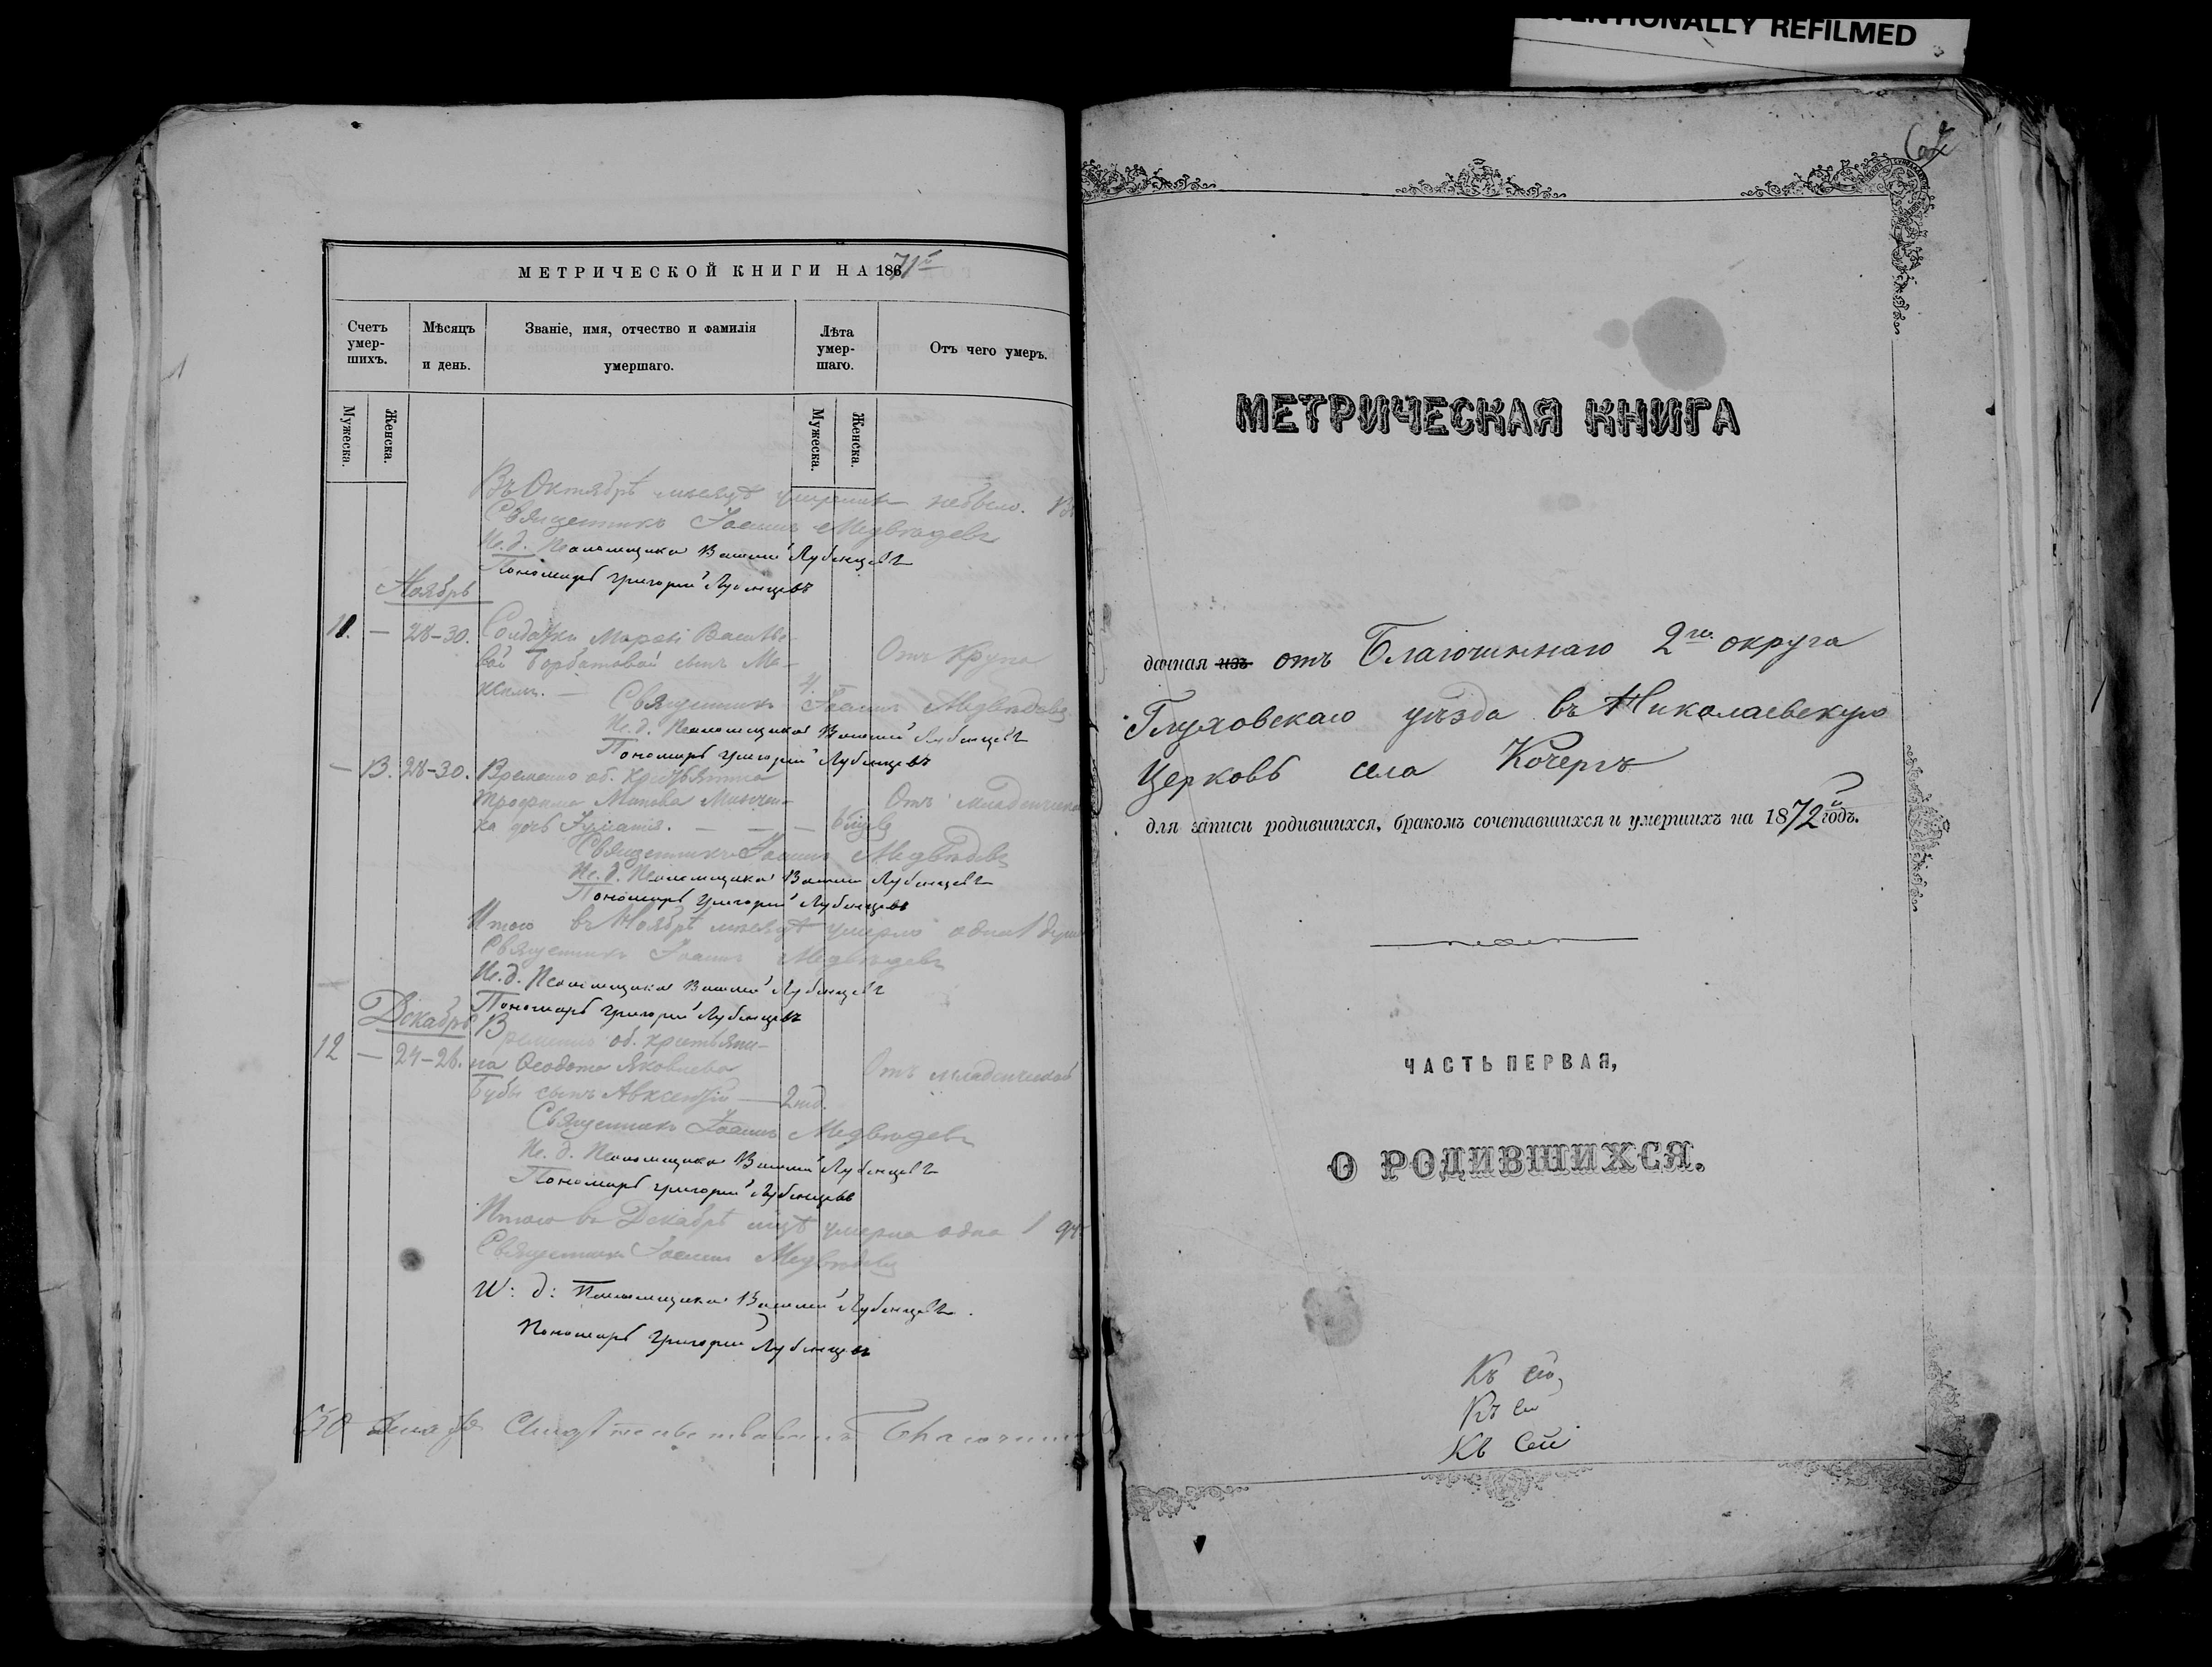 ENTIONALLY REFILMED
МЕТРИЧЕСКОЙ КНИГИ НА 1871й
Счетъ умер-шихъ.
Мѣсяцъ и день.
Званіе, имя, отчество и фамилія умершаго.
Лѣта умер-шаго.
Отъ чего умеръ.
Мужеска.
Женска.
Мужеска.
Женска.
Въ Октябрѣ месяцѣ умершихъ небыло.
Священникъ Іоаннъ Медвѣдевъ
Ис. д. Псаломщика Василій Лубенцевъ
Пономарь Григорій Лубенцевъ
Ноябрь
11. — 28-30. Солдатки Марѳы Василье-
вой Горбатовой сынъ Ма-
Отъ крупа
ксимъ. — 4.
Священникъ Іоаннъ Медвѣдевъ
Ис. д. Псаломщика Василій Лубенцевъ
Пономарь Григорій Лубенцевъ
— 13. 28-30. Временно об. крестьянина
Трофима
Отъ младенческой
ка дочь
Священникъ Іоаннъ Медвѣдевъ
Ис. д. Псаломщика Василій Лубенцевъ
Пономарь Григорій Лубенцевъ
Итого въ Ноябрѣ месяцѣ умерло одна 1 душа
Священникъ Іоаннъ Медвѣдевъ
Ис. д. Псаломщика Василій Лубенцевъ
Пономарь Григорій Лубенцевъ
Декабрь
Временно об. крестьяни-
12 — 24-26. на Ѳеодота Яковлева
Отъ младенческой
Бубы сынъ Авксентій — 2 нед.
Священникъ Іоаннъ Медвѣдевъ
Ис. д. Псаломщика Василій Лубенцевъ
Пономарь Григорій Лубенцевъ
Итого въ Декабрѣ мцѣ умерла одна 1
Священникъ Іоаннъ Медвѣдевъ
И: д: Псаломщика Василій Лубенцевъ.
Пономарь Григорій Лубенцевъ
МЕТРИЧЕСКАЯ КНИГА
данная изъ отъ Благочиннаго 2го округа
Глуховскаго уѣзда въ Николаевскую
Церковь села Кочергъ
для записи родившихся, бракомъ сочетавшихся и умершихъ на 1872й годъ.
ЧАСТЬ ПЕРВАЯ,
О РОДИВШИХСЯ.
Къ
Къ
Къ сей